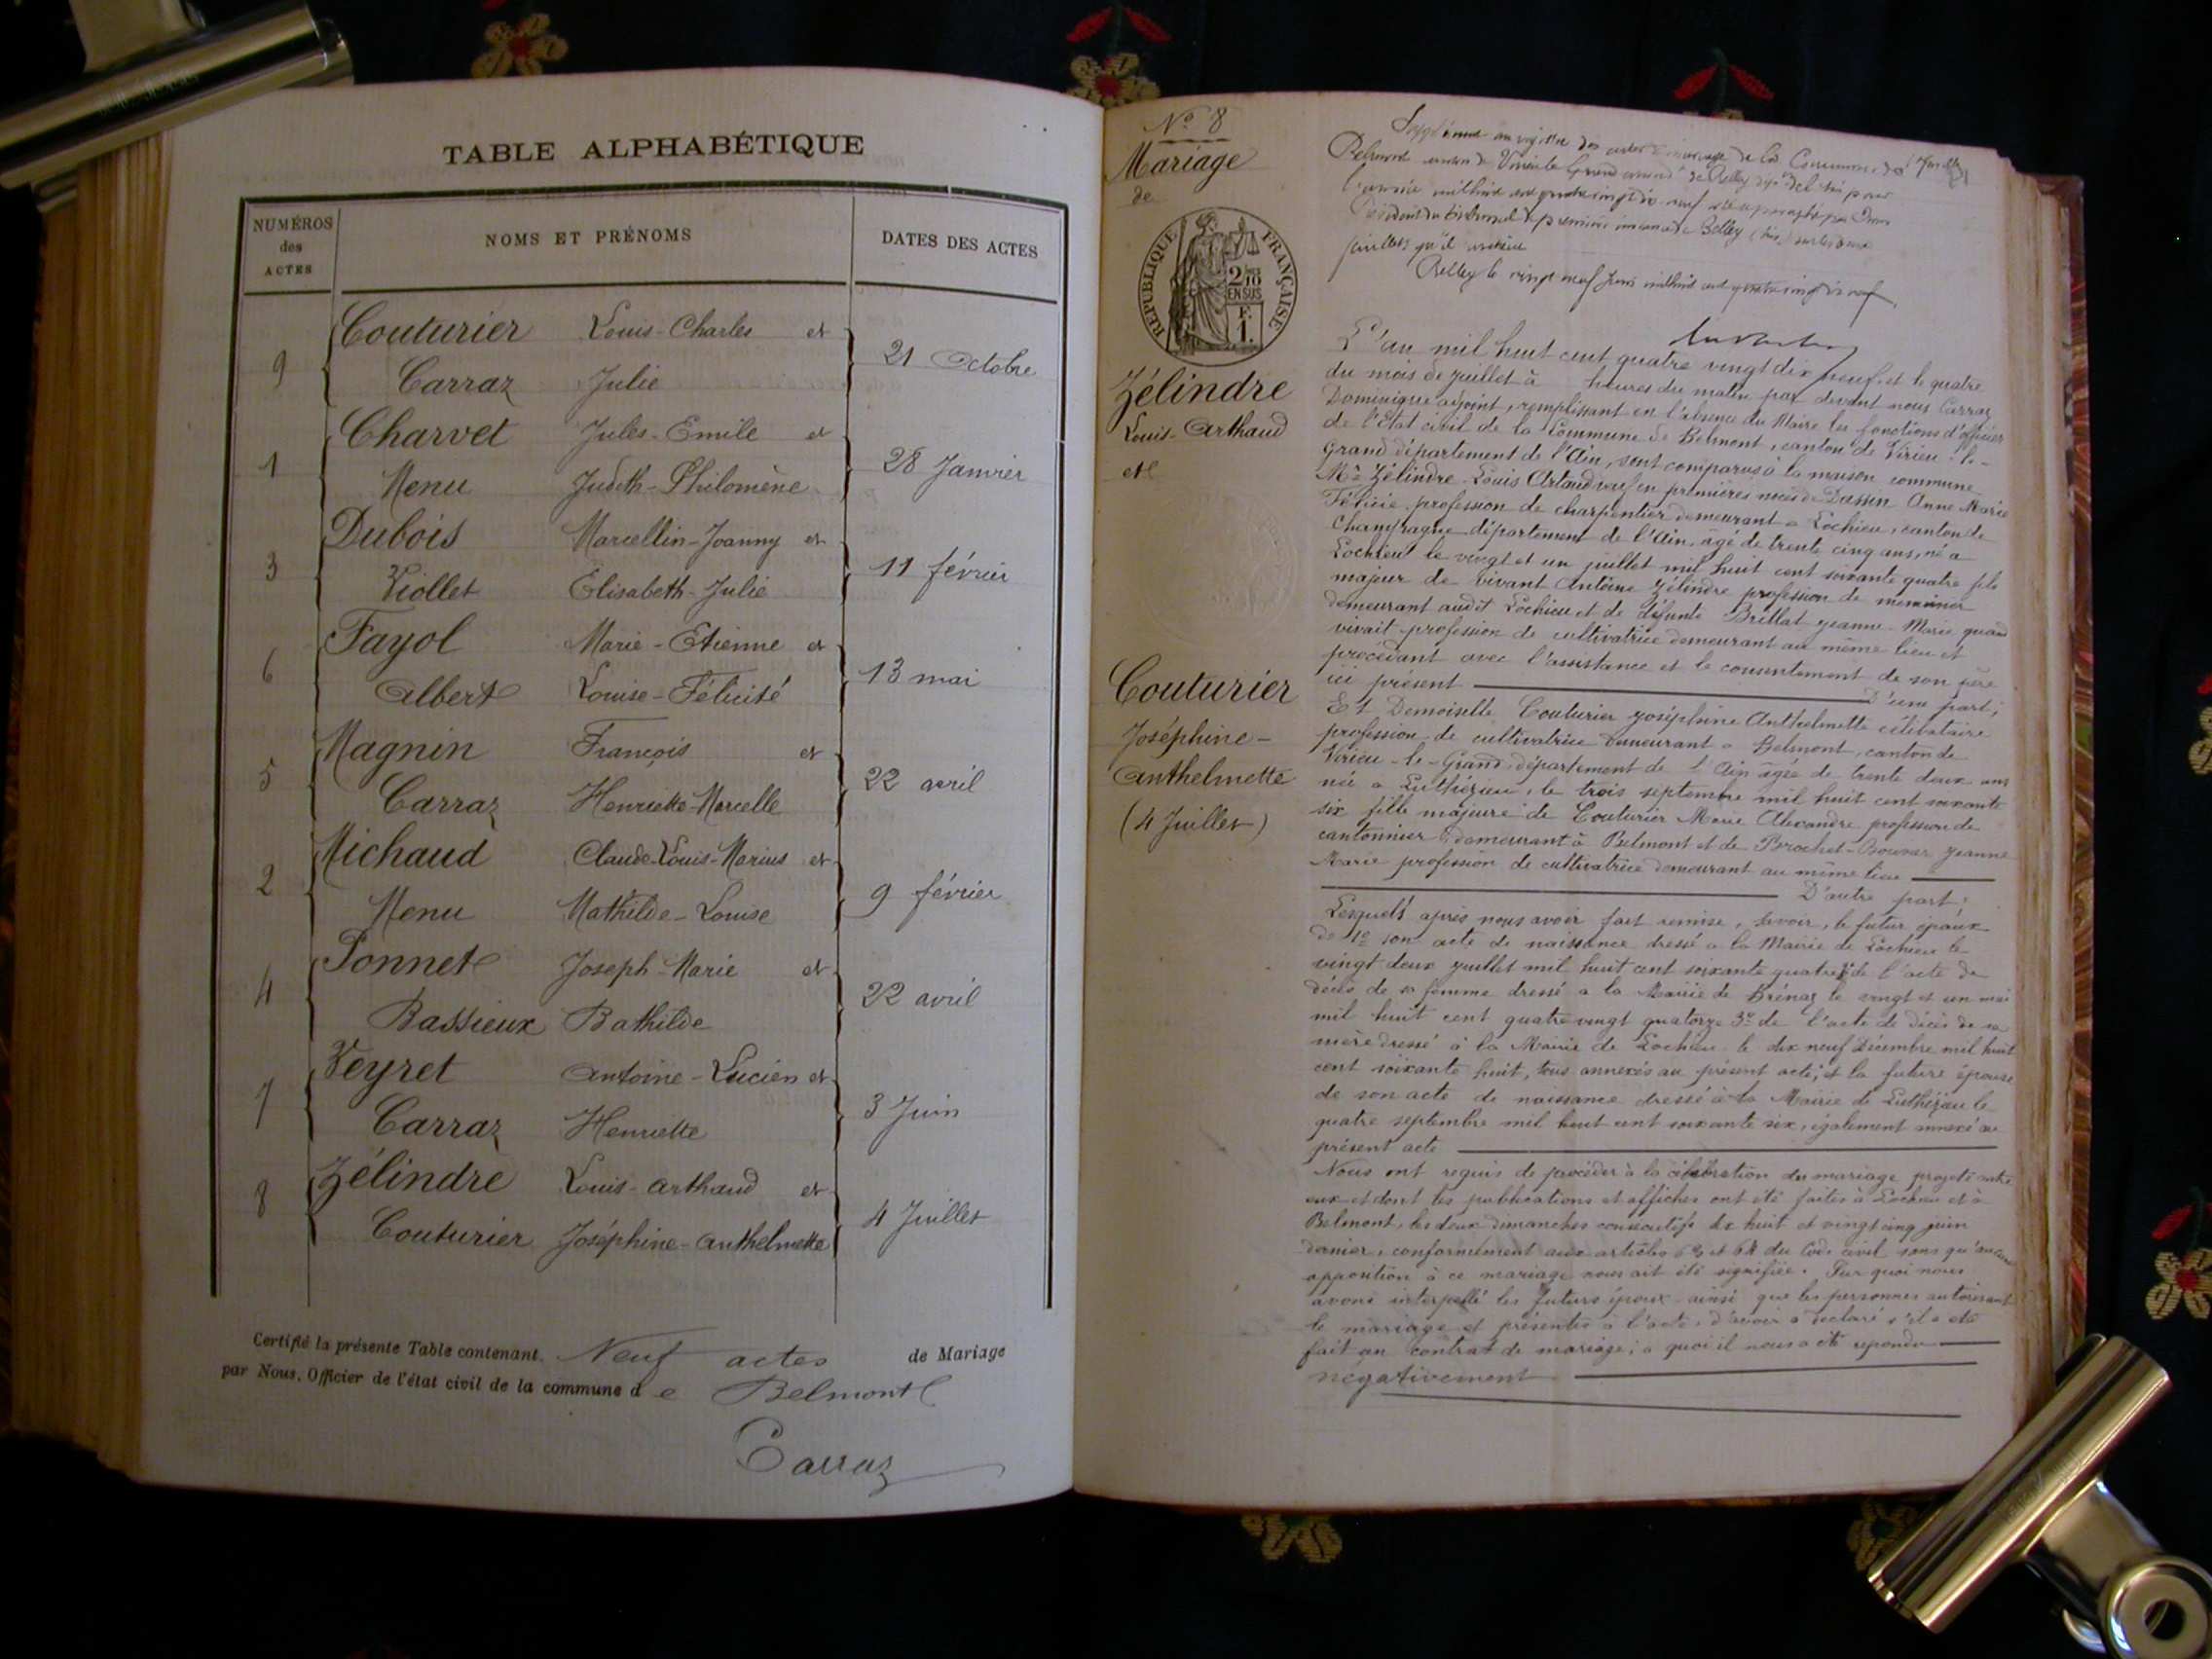 TABLE ALPHABÉTIQUE
NUMÉROS
des
ACTES
NOMS ET PRÉNOMS
DATES DES ACTES
9
Couturier Louis-Charles et
Carraz Julie
21 Octobre
1
Charvet Jules-Emile et
Menu Judith-Philomène
28 Janvier
3
Dubois Marcellin-Joanny et
Viollet Elisabeth-Julie
11 février
6
Fayol Marie-Etienne et
Albert Louise-Félicité
13 mai
5
Magnin François et
Carraz Henriette-Marcelle
22 avril
2
Michaud Claude-Louis-Marius et
Menu Mathilde-Louise
9 février
4
Ponnet Joseph-Marie et
Bassieux Bathilde
22 avril
7
Veyret Antoine-Lucien et
Carraz Henriette
3 Juin
8
Zélindre Louis-Arthaud et
Couturier Joséphine-Anthelmette
4 Juillet
Certifié la présente Table contenant Neuf actes de Mariage
par Nous, Officier de l'état civil de la commune de Belmont
Carraz
N° 8
Mariage
de
RÉPUBLIQUE FRANÇAISE
2/10
EN SUS
F.
1.
Zélindre
Louis-Arthaud
et
Couturier
Joséphine-
Anthelmette
(4 Juillet)
Supplément au registre des actes de mariage de la Commune de
Belmont canton de Virieu le Grand arrond de Belley déjà délivré pour
l'année mil huit cent quatre vingt dix neuf
Président du tribunal de première instance de Belley
feuillets qu'il contient
Belley le vingt neuf Juin mil huit cent quatre vingt dix neuf
L'an mil huit cent quatre vingt dix neuf et le quatre
du mois de juillet à heures du matin par devant nous Carraz
Dominique adjoint, remplissant en l'absence du Maire les fonctions d'officier
de l'Etat civil de la Commune de Belmont, canton de Virieu-le-
Grand département de l'Ain, sont comparus à la maison commune
Mr Zélindre Louis Artaud veuf en premières noces de Dussin Anne Marie
Félicie profession de charpentier demeurant a Lochieu, canton de
Champagne département de l'Ain, âgé de trente cinq ans, né a
Lochieu le vingt et un juillet mil huit cent soixante quatre fils
majeur de vivant Antoine Zélindre profession de menuisier
demeurant audit Lochieu et de défunte Brillat Jeanne-Marie quand
vivait profession de cultivatrice demeurant au même lieu et
procédant avec l'assistance et le consentement de son père
ici présent D'une part;
Et Demoiselle Couturier Joséphine Anthelmette célibataire
profession de cultivatrice demeurant a Belmont, canton de
Virieu-le-Grand département de l'Ain âgée de trente deux ans
née a Luthézieu, le trois septembre mil huit cent soixante
six fille majeure de Couturier Marie Alexandre profession de
cantonnier demeurant à Belmont et de Brochet- Jeanne
Marie profession de cultivatrice demeurant au même lieu
D'autre part;
Lesquels après nous avoir fait remise, savoir, le futur époux
de 1° son acte de naissance dressé a la Mairie de Lochieu le
vingt deux juillet mil huit cent soixante quatre 2° de l'acte de
décès de sa femme dressé a la Mairie de Brénaz le vingt et un mai
mil huit cent quatre vingt quatorze 3° de l'acte de décès de sa
mère dressé à la Mairie de Lochieu le dix neuf Décembre mil huit
cent soixante huit, tous annexés au présent acte; et la future épouse
de son acte de naissance dressé à la Mairie de Luthézieu le
quatre septembre mil huit cent soixante six, également annexé au
présent acte
Nous ont requis de procéder à la célébration du mariage projeté entre
eux et dont les publications et affiches ont été faites à Lochieu et à
Belmont, les deux dimanches consécutifs dix huit et vingt cinq juin
dernier, conformément aux articles 63 et 64 du Code civil sans qu'aucune
opposition à ce mariage nous ait été signifiée. Sur quoi nous
avons interpellé les futurs époux ainsi que les personnes autorisant
le mariage et présentes à l'acte, d'avoir a déclaré s'il a été
fait un contrat de mariage, a quoi il nous a été répondu
négativement